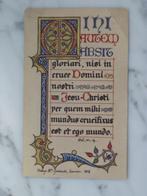 MIHI
AUTEM
ABSIT
gloriari, nisi in
cruce Domini
nostri
Jesu Christi
per quem mihi
mundus crucifixus
est et ego mundo.